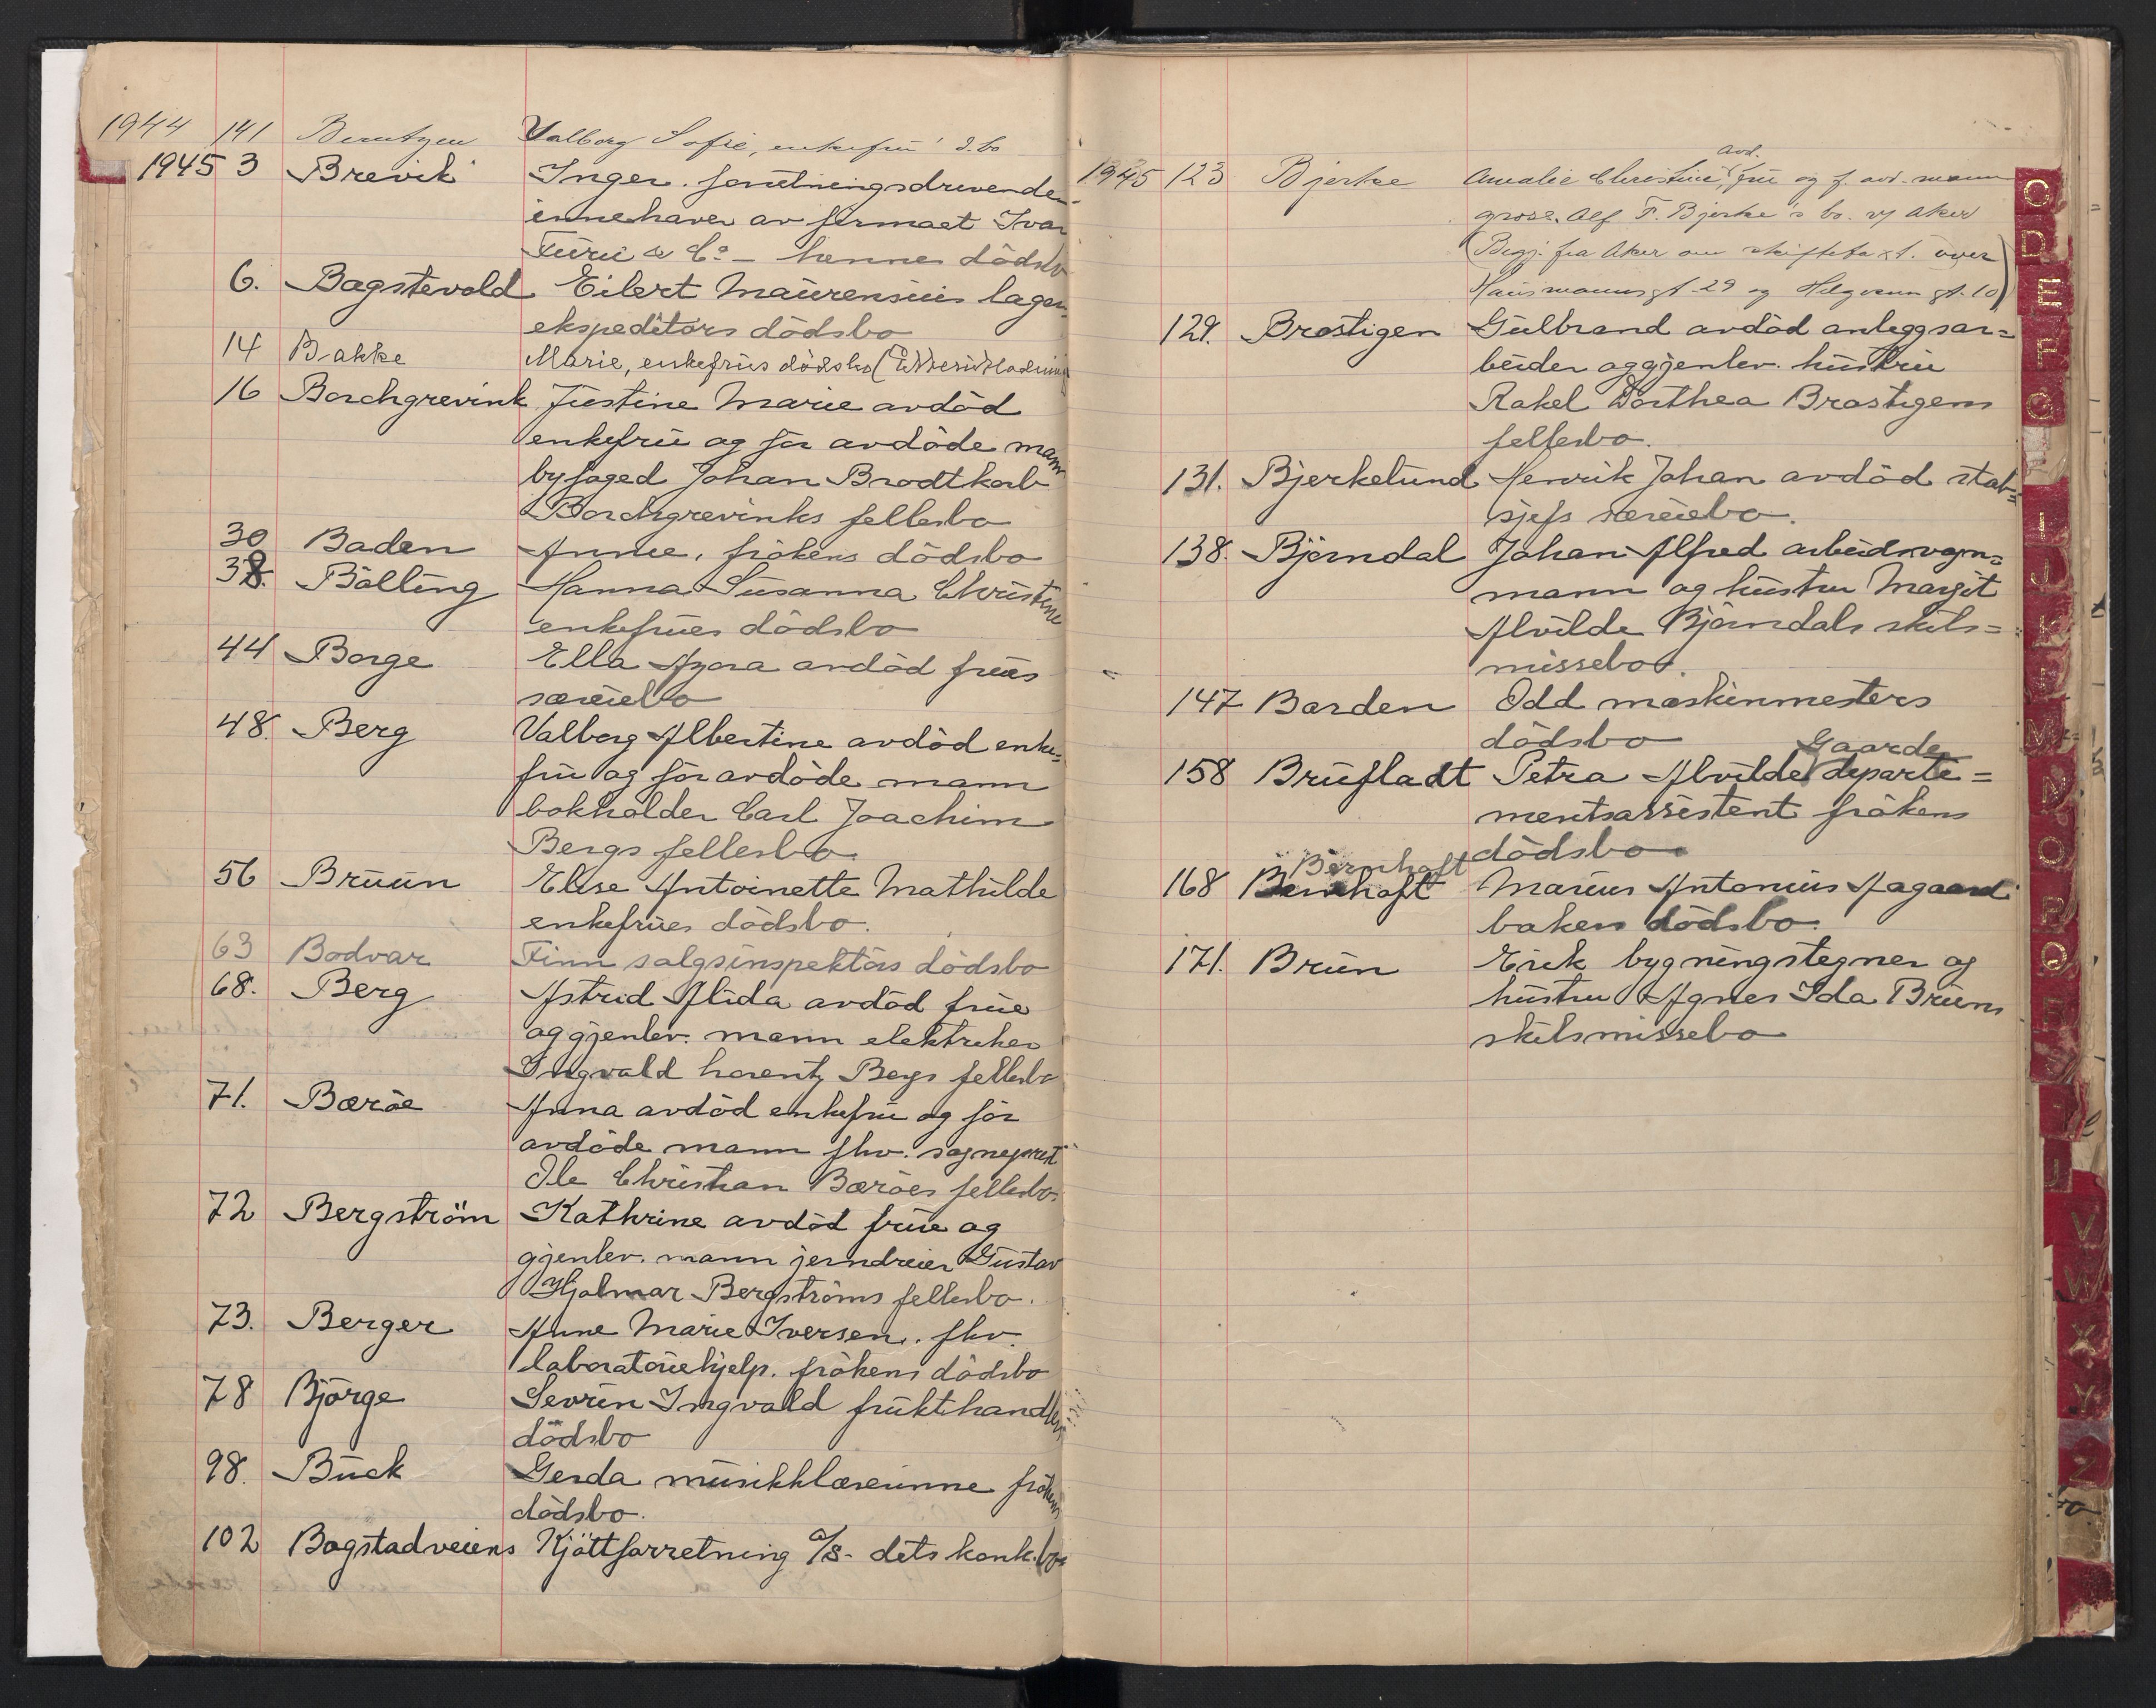 1944 141 Berntzen Valborg Sofie, enkefru d.bo
1945 3 Brevik Inger. forretningsdrivende-
innehaver av firmaet Ivar
Furu & Co - hennes dödsbo
6. Bagstevold Eilert Maurensius lager-
ekspeditörs dödsbo
14 Bakke Marie, enkefrues dödsbo
16 Borchgrevink Justine Marie avdöd
enkefrue og för avdöde mann
byfoged Johan Brodtkorb
Borchgrevinks fellesbo
30 Baden Anne, frökens dödsbo
38. Bölling Hanna Susanna Christine
enkefrues dödsbo
44 Borge Ella Azora avdöd frues
særeiebo
48. Berg Valborg Albertine avdöd enke=
frue og för avdöde mann
bokholder Carl Joachim
Bergs fellesbo
56 Bruun Elise Antoinette Mathilde
enkefrues dödsbo.
63 Bodvar Finn salgsinspektörs dödsbo
68. Berg Astrid Alida avdöd frue
og gjenlev. mann elektriker
Ingvald Lorentz Bergs fellesbo
71. Baröe Anna avdöd enkefrue og för
avdöde mann fhv. sogneprest
Ole Christian Baröes fellesbo.
72 Bergström Kathrine avdöd frue og
gjenlev. mann jerndreier Gustav
Hjalmar Bergströms fellesbo.
73. Berger Anne Marie Iversen. fhv.
laboratoriehjelp. frökens dödsbo
78 Björge Sevrin Ingvald frukthandlers
dödsbo
98. Buck Gerda musikklærerinne frökens
dödsbo.
102 Bogstadveiens Kjöttforretning A/S - dets konk.bo
1945 123 Bjerke Amalie Christine, avd. fru og f. avd. mann
gross. Alf T. Bjerke's bo. v/ Aker
(Begj. fra Aker om skiftetakst. over
Hausmannsgt. 29 og Helgesens gt. 10)
129. Brostigen Gulbrand avdöd anleggsar=
beider og gjenlev. hustru
Rakel Dorthea Brostigens
fellesbo.
131. Bjerkelund Henrik Johan avdöd stab=
sjefs særeiebo.
138. Björndal Johan Alfred arbeidsvogn=
mann og hustru Margit
Alvilde Björndals skils=
missebo.
147 Barden Odd maskinmesters
dödsbo
158 Brufladt Petra Alvilde Gaarder departe=
mentsassistent frökens
dödsbo
Bernhoft
168 Bernhoft Marius Antonius Aagaard
bakers dödsbo.
171. Bruun Erik bygningstegner og
hustru Agnes Ida Bruuns
skilsmissebo
C
D
E
F
G
I
J
K
L
M
N
O
P
Q
R
S
T
U
V
W
X
Y
Z